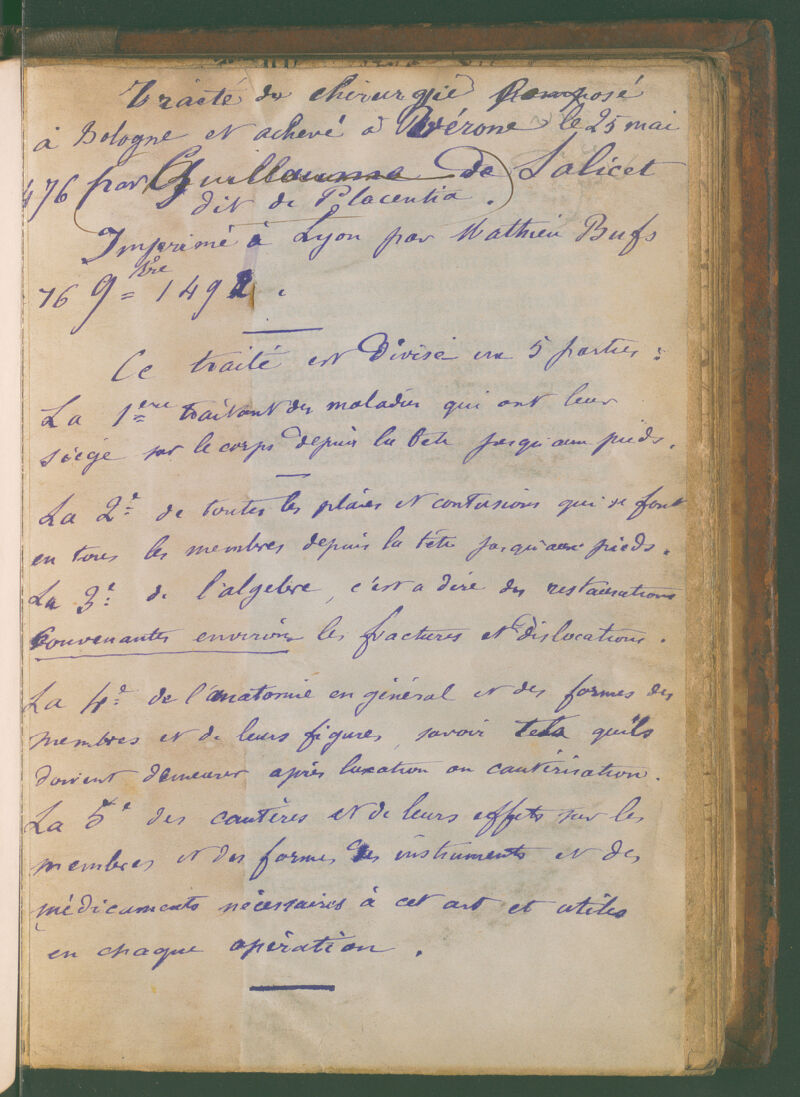 Traité de chirurgie composé
à Bologne et achevé à Vérone le 25 mai
476 par Guillaume de Salicet
dit de Placentia.
Imprimé à Lyon par Mathieu Bufs
76 9=bre 1492.
Ce traité est divisé en 5 parties :
La 1=ere traitant des maladies qui ont leur
siège sur le corps depuis la tête jusqu'aux pieds.
La 2=e de toutes les plaies et contusions qui se font
en tous les membres depuis la tête jusqu'aux pieds.
La 3=e de l'algebre, c'est a dire des restaurations
convenantes environ les fractures et dislocations.
La 4=e de l'anatomie en général et des formes des
membres et de leurs figures, savoir tels qu'ils
doivent demeurer après luxation ou cautérisation.
La 5=e des cautères et de leurs effets sur les
membres et des formes des instruments et des
médicaments nécessaires à cet art et utiles
en chaque opération.